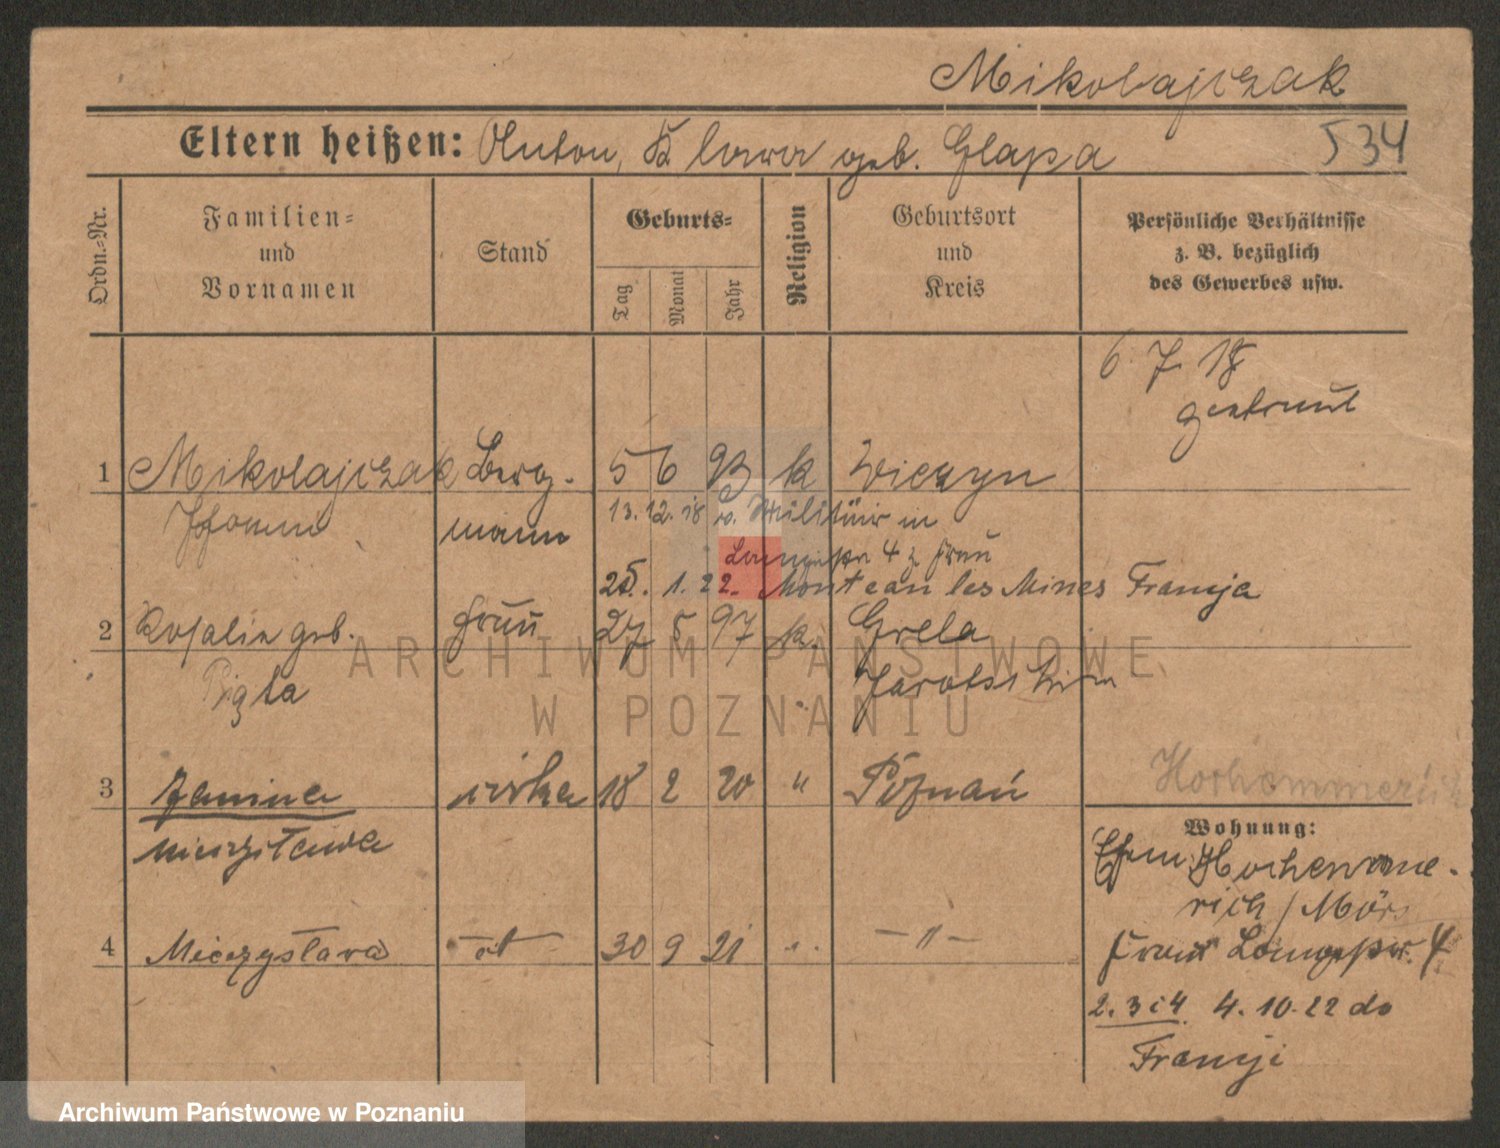 Mikolajczak
Eltern heißen: Anton, Klara geb. Glapa 534
Ordn.-Nr.
Familien-
und
Vornamen
Stand
Geburts-
Tag Monat Jahr
Religion
Geburtsort
und
Kreis
Persönliche Verhältnisse
z. B. bezüglich
des Gewerbes usw.
6. 7. 18
getraut
1 Mikolajczak Berg- 5 6 93 k Wieczyn
Johann mann 13. 12. 18 v. Militär in
4 z. Frau
25. 1. 22. Montceau les Mines Francja
2 Rosalie geb. Frau 27 5 97 k. Grela
Pigla Jarotschin
3 Janina córka 18 2 20 " Poznań
Mieczysława
Hochemmerich
Wohnung:
Hochemme-
rich / Mörs
4 Mieczysława 30 9 21 " — " —
Frau 4
2. 3 i 4 4. 10. 22 do
Francji
ARCHIWUM PAŃSTWOWE
W POZNANIU
Archiwum Państwowe w Poznaniu